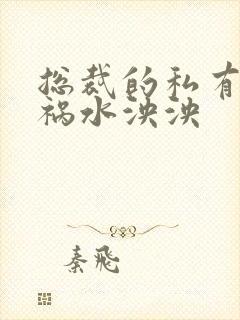 总裁的私有
祸水泱泱
秦飛